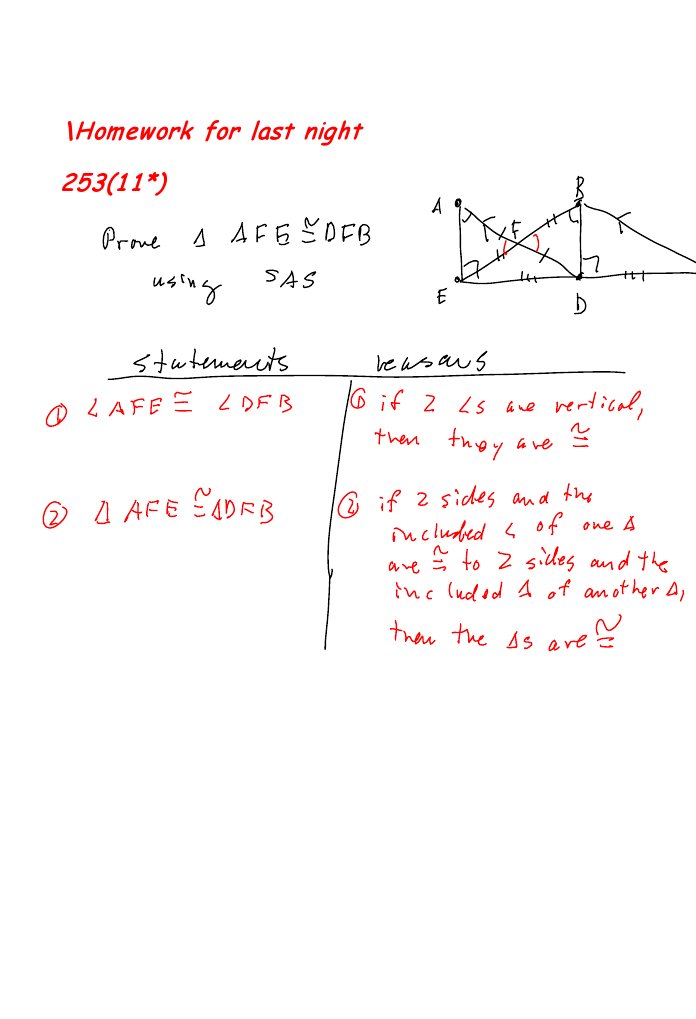 \Homework for last night
253(11*)
Prove Δ AFE ≅ DFB
using SAS
A
F
B
E
D
statements reasons
① ∠AFE ≅ ∠DFB
① if 2 ∠s are vertical,
then they are ≅
② Δ AFE ≅ ΔDFB
② if 2 sides and the
included ∠ of one Δ
are ≅ to 2 sides and the
included Δ of another Δ,
then the Δs are ≅